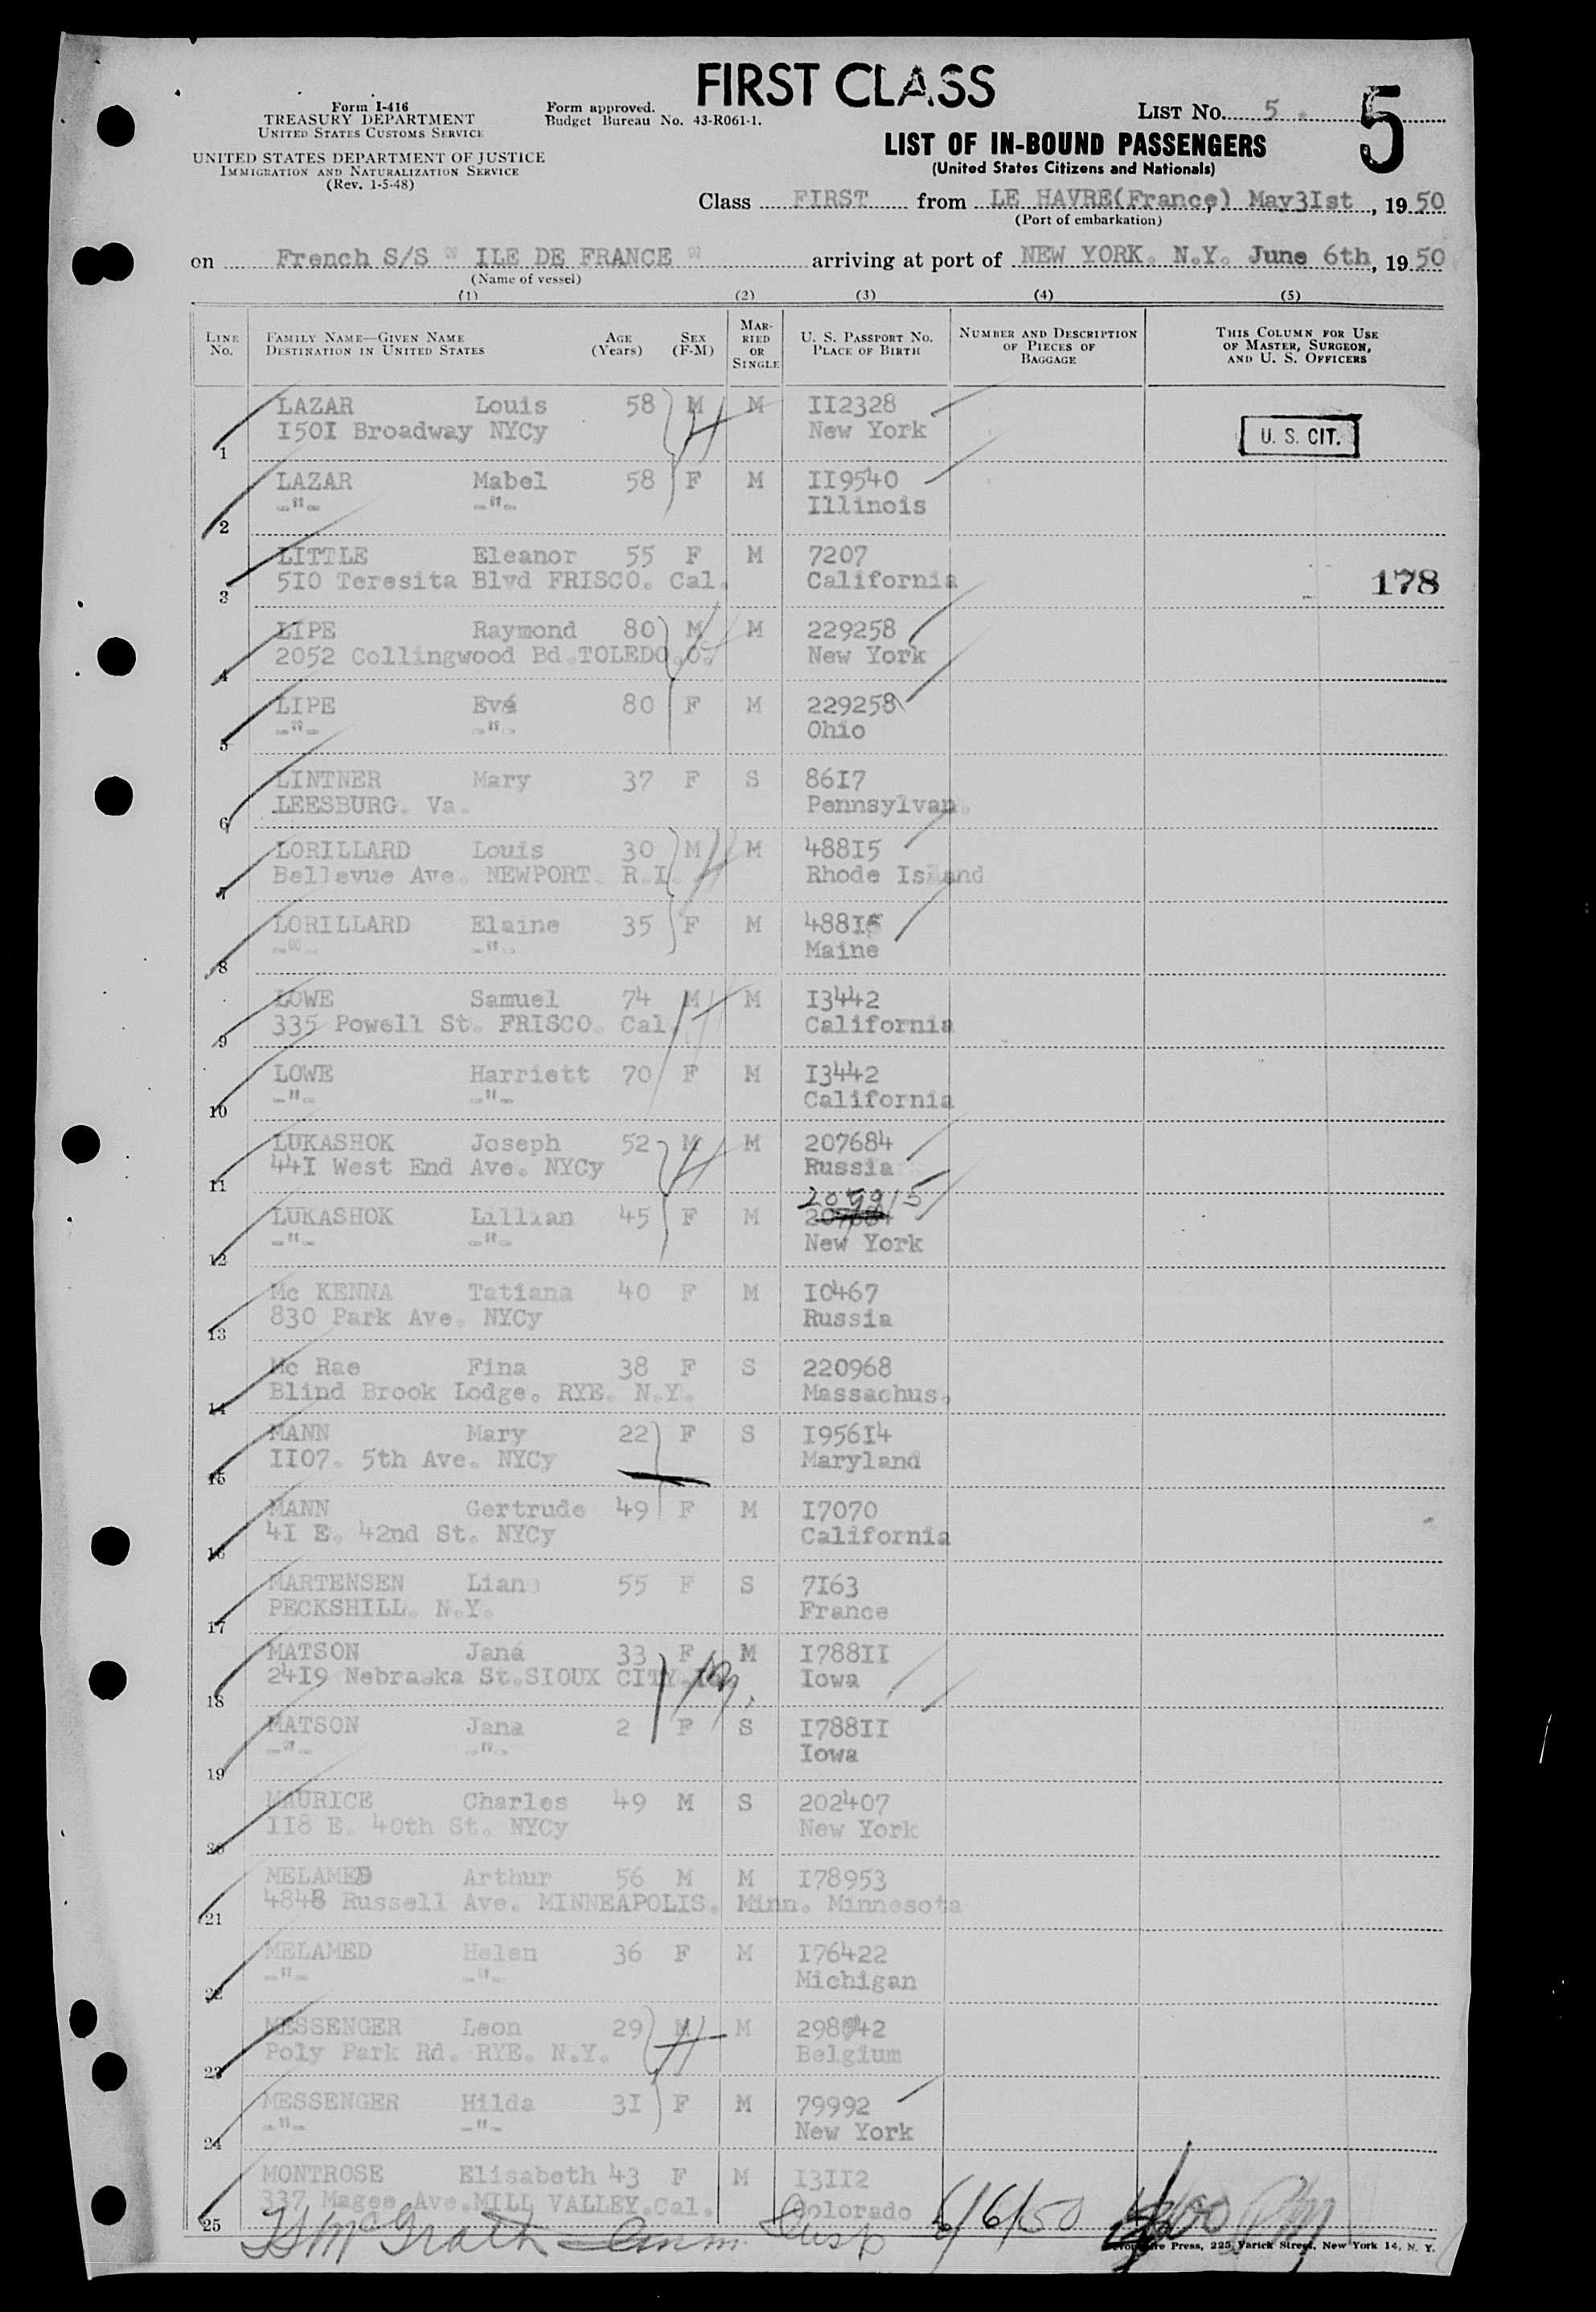 FIRST CLASS
Form I-416
TREASURY DEPARTMENT
UNITED STATES CUSTOMS SERVICE
UNITED STATES DEPARTMENT OF JUSTICE
IMMIGRATION AND NATURALIZATION SERVICE
(Rev. 1-5-48)
Form approved.
Budget Bureau No. 43-R061-1.
LIST No. 5 .
5
LIST OF IN-BOUND PASSENGERS
(United States Citizens and Nationals)
Class FIRST from LE HAVRE(France,) May3Ist, 19 50
(Port of embarkation)
on French S/S " ILE DE FRANCE " arriving at port of NEW YORK. N.Y. June 6th, 19 50
(Name of vessel)
(1) (2) (3) (4) (5)
LINE No. FAMILY NAME—GIVEN NAME DESTINATION IN UNITED STATES AGE (Years) SEX (F-M) MARRIED OR SINGLE U. S. PASSPORT No. PLACE OF BIRTH NUMBER AND DESCRIPTION OF PIECES OF BAGGAGE THIS COLUMN FOR USE OF MASTER, SURGEON, AND U. S. OFFICERS
LAZAR Louis 58 M M II2328
I50I Broadway NYCy New York
U. S. CIT.
1
LAZAR Mabel 58 F M II9540
-"- -"- Illinois
2
LITTLE Eleanor 55 F M 7207
5IO Teresita Blvd FRISCO. Cal. California
178
3
LIPE Raymond 80 M M 229258
2052 Collingwood Bd.TOLEDO.O. New York
4
LIPE Eva 80 F M 229258
-"- -"- Ohio
5
LINTNER Mary 37 F S 86I7
LEESBURG. Va. Pennsylvan.
6
LORILLARD Louis 30 M M 488I5
Bellevue Ave. NEWPORT. R.I. Rhode Island
7
LORILLARD Elaine 35 F M 488I5
-"- -"- Maine
8
LOWE Samuel 74 M M I3442
335 Powell St. FRISCO. Cal. California
9
LOWE Harriett 70 F M I3442
-"- -"- California
10
LUKASHOK Joseph 52 M M 207684
44I West End Ave. NYCy Russia
11
LUKASHOK Lillian 45 F M
-"- -"- New York
12
Mc KENNA Tatiana 40 F M I0467
830 Park Ave. NYCy Russia
13
Mc Rae Fina 38 F S 220968
Blind Brook Lodge. RYE. N.Y. Massachus.
14
MANN Mary 22 F S I956I4
II07. 5th Ave. NYCy Maryland
15
MANN Gertrude 49 F M I7070
4I E. 42nd St. NYCy California
16
MARTENSEN Lian 55 F S 7I63
PECKSHILL. N.Y. France
17
MATSON Jana 33 F M I788II
24I9 Nebraska St.SIOUX CITY. Iowa
18
MATSON Jana 2 F S I788II
-"- -"- Iowa
19
MAURICE Charles 49 M S 202407
II8 E. 40th St. NYCy New York
20
MELAMED Arthur 56 M M I78953
4848 Russell Ave. MINNEAPOLIS. Minn. Minnesota
21
MELAMED Helen 36 F M I76422
-"- -"- Michigan
22
MESSENGER Leon 29 M M
Poly Park Rd. RYE. N.Y. Belgium
23
MESSENGER Hilda 3I F M 79992
-"- -"- New York
24
MONTROSE Elisabeth 43 F M I3II2
337 Magee Ave.MILL VALLEY.Cal. Colorado
25
McGrath Imm. Insp 6/6/50 PM
Press, 225 Varick Street, New York 14, N. Y.